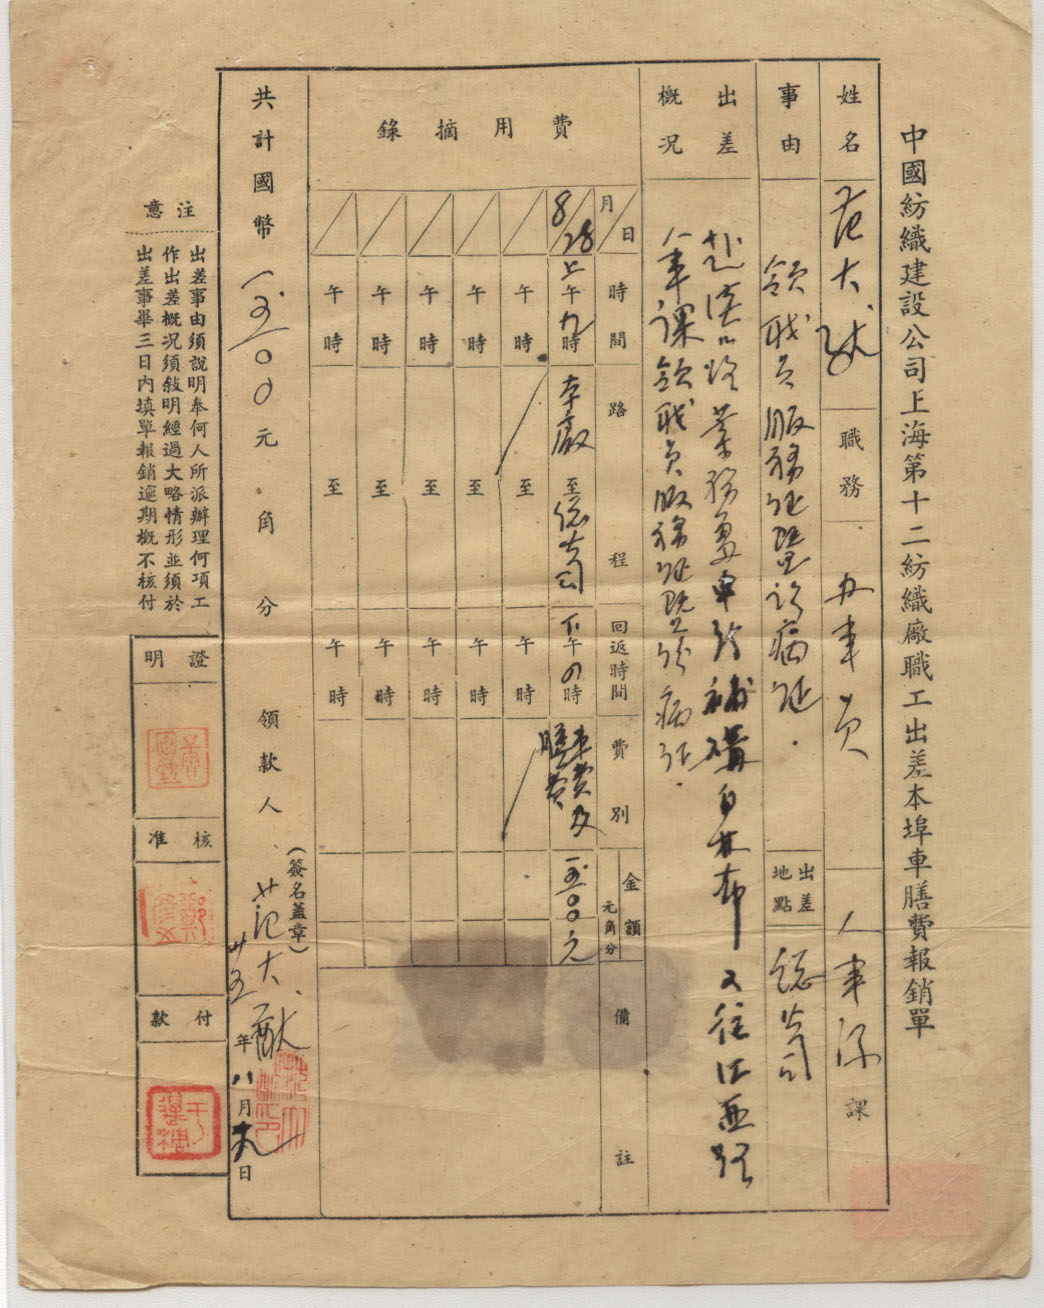 中國紡織建設公司上海第十二紡織廠職工出差本埠車膳費報銷單
姓名 范大猷 職務 办事員 人事 課
事由 領職員服務证暨診病证
出差地點 總公司
出差概況
赴漢口路業務 補購白林布 又往江西路
人事課領職員服務证既 診病证
費用摘錄
月日 時間 路程 回返時間 費別 金額 元角分 備註
8/28 上午九時 本廠至總公司 下午 時 車費及膳費 一五〇〇元
午時 至 午時
午時 至 午時
午時 至 午時
午時 至 午時
午時 至 午時
共計國幣 一五〇〇元 角 分 領款人 范大猷 (簽名蓋章)
卅五年八月 日
注意
出差事由須說明奉何人所派辦理何項工
作出差概況須敍明經過大略情形並須於
出差事畢三日內填單報銷逾期概不核付
證明
核准
付款